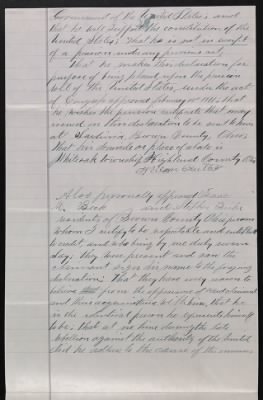 Government of the United States, and
that he will support the constitution of the
United States; that he is not in receipt
of a pension under any previous act;
That he makes this declaration for
purpose of being placed upon the pension
roll of the United States, under the act
of Congress approved February 14, 1871, that
he wishes the pension certificate that may
issued on this declaration to be sent to him
at Sardinia, Brown County, Ohio
that his domicile or place of abode is
Whiteoak Township, Highland County Ohio
Also personally appeared Isaac
and
residents of Brown County, Ohio, persons
whom I certify to be respectable and entitled
to credit, and who being by me duly sworn
say: they were present and saw the
claimant sign his name to the foregoing
declaration; That they have every reason to
believe from the appearance of said claimant
and their acquaintance with him, that he
is the identical person he represents himself
to be; that at no time during the late
rebellion against the authority of the United
did he adhere to the cause of the enemies